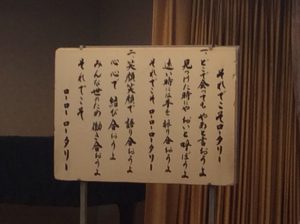 それでこそロータリー
一、どこで会っても やあと言おうよ
見つけた時にゃ おいと呼ぼうよ
遠い時には手を振り合おうよ
それでこそ ローロータリー
二、笑顔笑顔で 語り合おうよ
心心で 結び合おうよ
みんな世のため 働き合おうよ
それでこそ
ローローロータリー